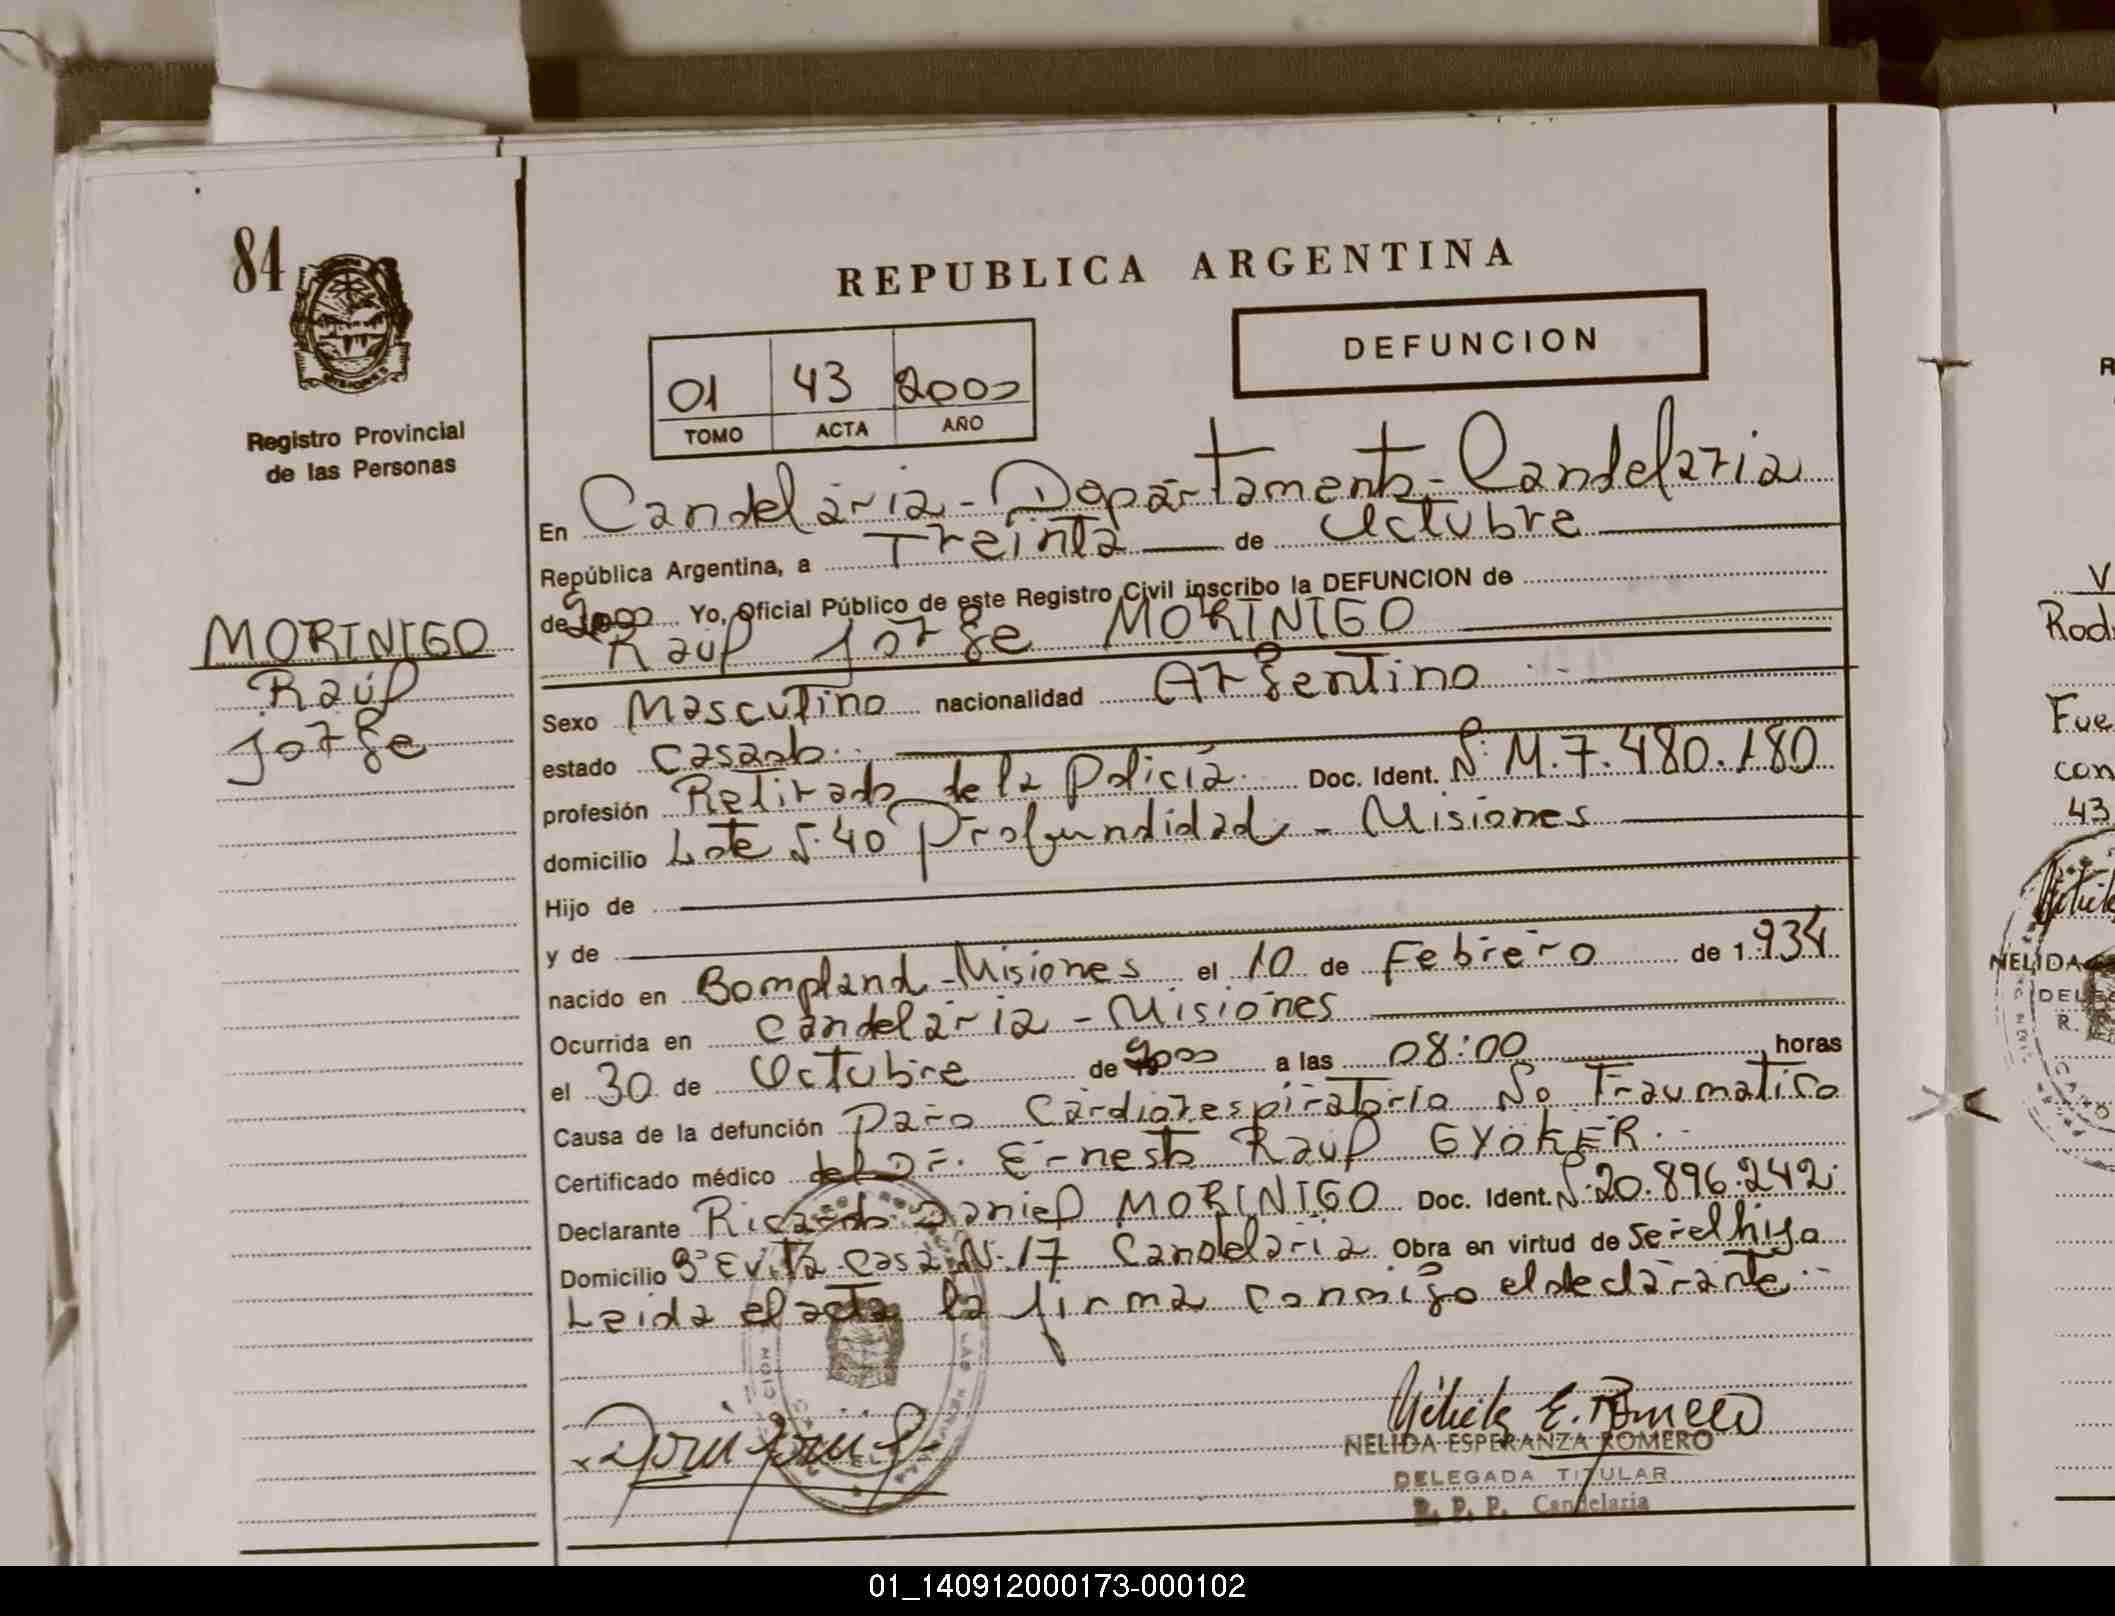 84
REPUBLICA ARGENTINA
DEFUNCION
01 43 2000
TOMO ACTA AÑO
MISIONES
Registro Provincial
de las Personas
En Candelaria - Departamento - Candelaria
República Argentina, a Treinta de Octubre
de 2000 Yo, Oficial Público de este Registro Civil inscribo la DEFUNCION de
Raúl Jorge MORINIGO
MORINIGO
Raúl
Jorge
Sexo Masculino nacionalidad Argentino
estado Casado
profesión Retirado de la Policía Doc. Ident. N: M.7.480.180
domicilio Lote N: 40 Profundidad - Misiones
Hijo de
y de
nacido en Bompland - Misiones el 10 de Febrero de 1.934
Ocurrida en Candelaria - Misiones
el 30 de Octubre de 2000 a las 08:00 horas
Causa de la defunción Paro Cardiorespiratorio No Traumatico
Certificado médico del Dr. Ernesto Raúl GYOKER.
Declarante Ricardo Daniel MORINIGO Doc. Ident. N: 20.896.242
Domicilio Bº Evita Casa N: 17 Candelaria Obra en virtud de ser el hijo
Leida el acta la firma conmigo el declarante
NELIDA ESPERANZA ROMERO
DELEGADA TITULAR
R. P. P. Candelaria
R
V
Rod
Fue
con
43
NELIDA
DELE
R.
01_140912000173-000102